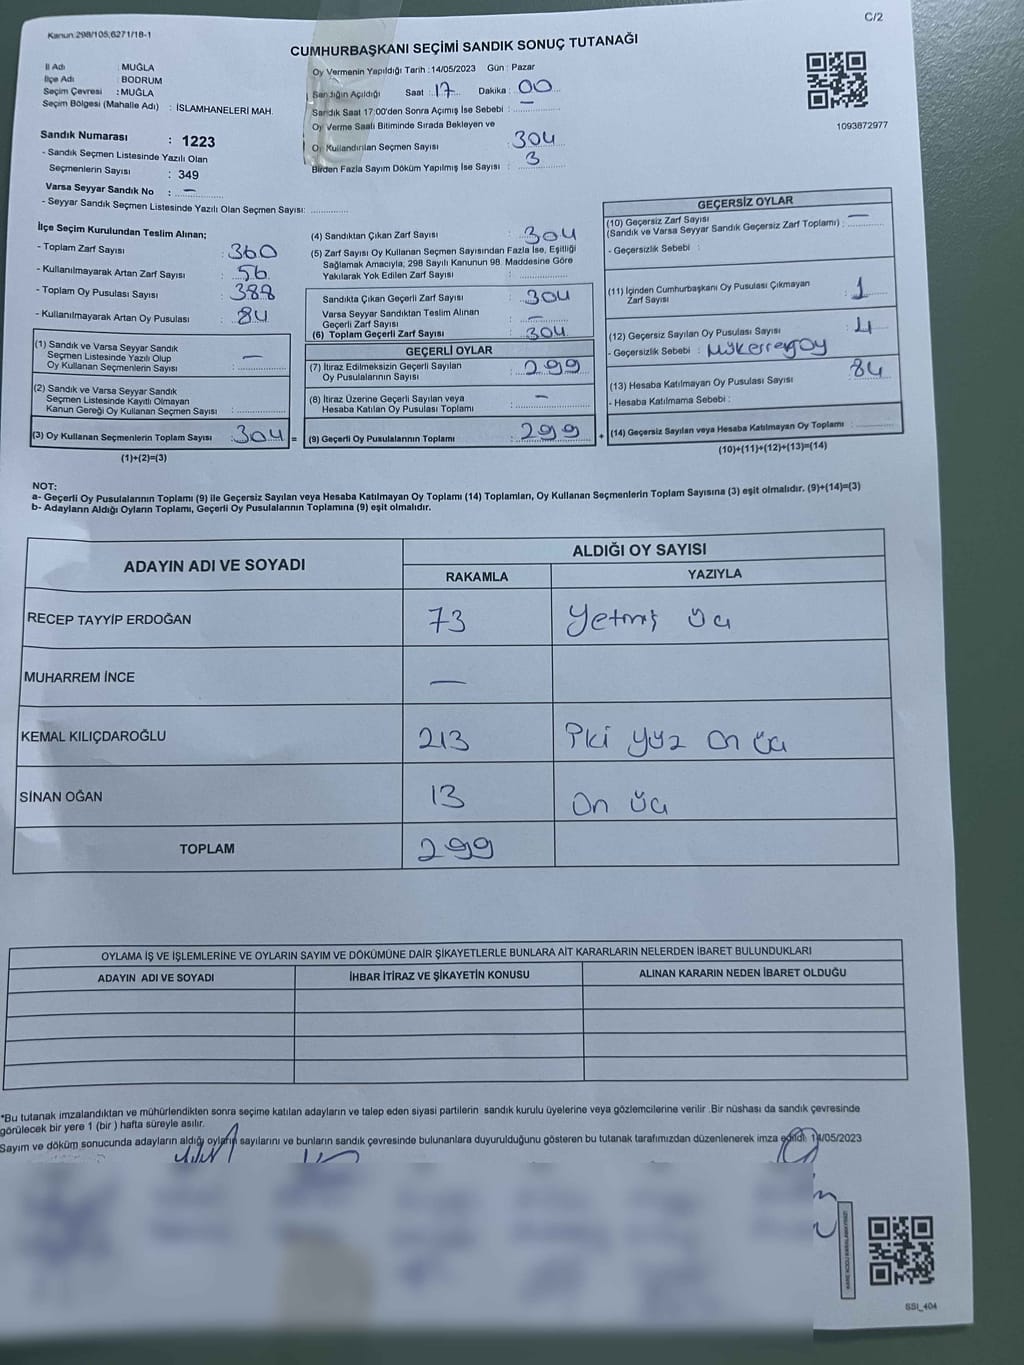 Kanun 298/105,6271/18-1
C/2
CUMHURBAŞKANI SEÇİMİ SANDIK SONUÇ TUTANAĞI
İl Adı : MUĞLA
İlçe Adı : BODRUM
Seçim Çevresi : MUĞLA
Seçim Bölgesi (Mahalle Adı) : İSLAMHANELERİ MAH.
Sandık Numarası : 1223
- Sandık Seçmen Listesinde Yazılı Olan
Seçmenlerin Sayısı : 349
Varsa Seyyar Sandık No : —
- Seyyar Sandık Seçmen Listesinde Yazılı Olan Seçmen Sayısı:
Oy Vermenin Yapıldığı Tarih : 14/05/2023 Gün : Pazar
Sandığın Açıldığı Saat : 17 Dakika : 00
Sandık Saat 17:00'den Sonra Açımış İse Sebebi : —
Oy Verme Saati Bitiminde Sırada Bekleyen ve
Oy Kullandırılan Seçmen Sayısı 304
Birden Fazla Sayım Döküm Yapılmış İse Sayısı : 3
1093872977
İlçe Seçim Kurulundan Teslim Alınan;
- Toplam Zarf Sayısı : 360
- Kullanılmayarak Artan Zarf Sayısı : 56
- Toplam Oy Pusulası Sayısı : 388
- Kullanılmayarak Artan Oy Pusulası : 84
(1) Sandık ve Varsa Seyyar Sandık
Seçmen Listesinde Yazılı Olup
Oy Kullanan Seçmenlerin Sayısı : —
(2) Sandık ve Varsa Seyyar Sandık
Seçmen Listesinde Kayıtlı Olmayan
Kanun Gereği Oy Kullanan Seçmen Sayısı :
(3) Oy Kullanan Seçmenlerin Toplam Sayısı : 304 =
(1)+(2)=(3)
(4) Sandıktan Çıkan Zarf Sayısı : 304
(5) Zarf Sayısı Oy Kullanan Seçmen Sayısından Fazla İse, Eşitliği
Sağlamak Amacıyla, 298 Sayılı Kanunun 98. Maddesine Göre
Yakılarak Yok Edilen Zarf Sayısı :
Sandıkta Çıkan Geçerli Zarf Sayısı : 304
Varsa Seyyar Sandıktan Teslim Alınan
Geçerli Zarf Sayısı : —
(6) Toplam Geçerli Zarf Sayısı : 304
GEÇERLİ OYLAR
(7) İtiraz Edilmeksizin Geçerli Sayılan
Oy Pusulalarının Sayısı : 299
(8) İtiraz Üzerine Geçerli Sayılan veya
Hesaba Katılan Oy Pusulası Toplamı : —
(9) Geçerli Oy Pusulalarının Toplamı : 299 +
GEÇERSİZ OYLAR
(10) Geçersiz Zarf Sayısı
(Sandık ve Varsa Seyyar Sandık Geçersiz Zarf Toplamı) : —
- Geçersizlik Sebebi :
(11) İçinden Cumhurbaşkanı Oy Pusulası Çıkmayan
Zarf Sayısı : 1
(12) Geçersiz Sayılan Oy Pusulası Sayısı : 4
- Geçersizlik Sebebi : Mükerrer oy
(13) Hesaba Katılmayan Oy Pusulası Sayısı : 84
- Hesaba Katılmama Sebebi :
(14) Geçersiz Sayılan veya Hesaba Katılmayan Oy Toplamı :
(10)+(11)+(12)+(13)=(14)
NOT:
a- Geçerli Oy Pusulalarının Toplamı (9) ile Geçersiz Sayılan veya Hesaba Katılmayan Oy Toplamı (14) Toplamları, Oy Kullanan Seçmenlerin Toplam Sayısına (3) eşit olmalıdır. (9)+(14)=(3)
b- Adayların Aldığı Oyların Toplamı, Geçerli Oy Pusulalarının Toplamına (9) eşit olmalıdır.
ADAYIN ADI VE SOYADI
ALDIĞI OY SAYISI
RAKAMLA YAZIYLA
RECEP TAYYİP ERDOĞAN 73 Yetmiş üç
MUHARREM İNCE —
KEMAL KILIÇDAROĞLU 213 İki yüz On üç
SİNAN OĞAN 13 On üç
TOPLAM 299
OYLAMA İŞ VE İŞLEMLERİNE VE OYLARIN SAYIM VE DÖKÜMÜNE DAİR ŞİKAYETLERLE BUNLARA AİT KARARLARIN NELERDEN İBARET BULUNDUKLARI
ADAYIN ADI VE SOYADI İHBAR İTİRAZ VE ŞİKAYETİN KONUSU ALINAN KARARIN NEDEN İBARET OLDUĞU
*Bu tutanak imzalandıktan ve mühürlendikten sonra seçime katılan adayların ve talep eden siyasi partilerin sandık kurulu üyelerine veya gözlemcilerine verilir .Bir nüshası da sandık çevresinde
görülecek bir yere 1 (bir ) hafta süreyle asılır.
Sayım ve döküm sonucunda adayların aldığı oyların sayılarını ve bunların sandık çevresinde bulunanlara duyurulduğunu gösteren bu tutanak tarafımızdan düzenlenerek imza edildi. 14/05/2023
SSI_404